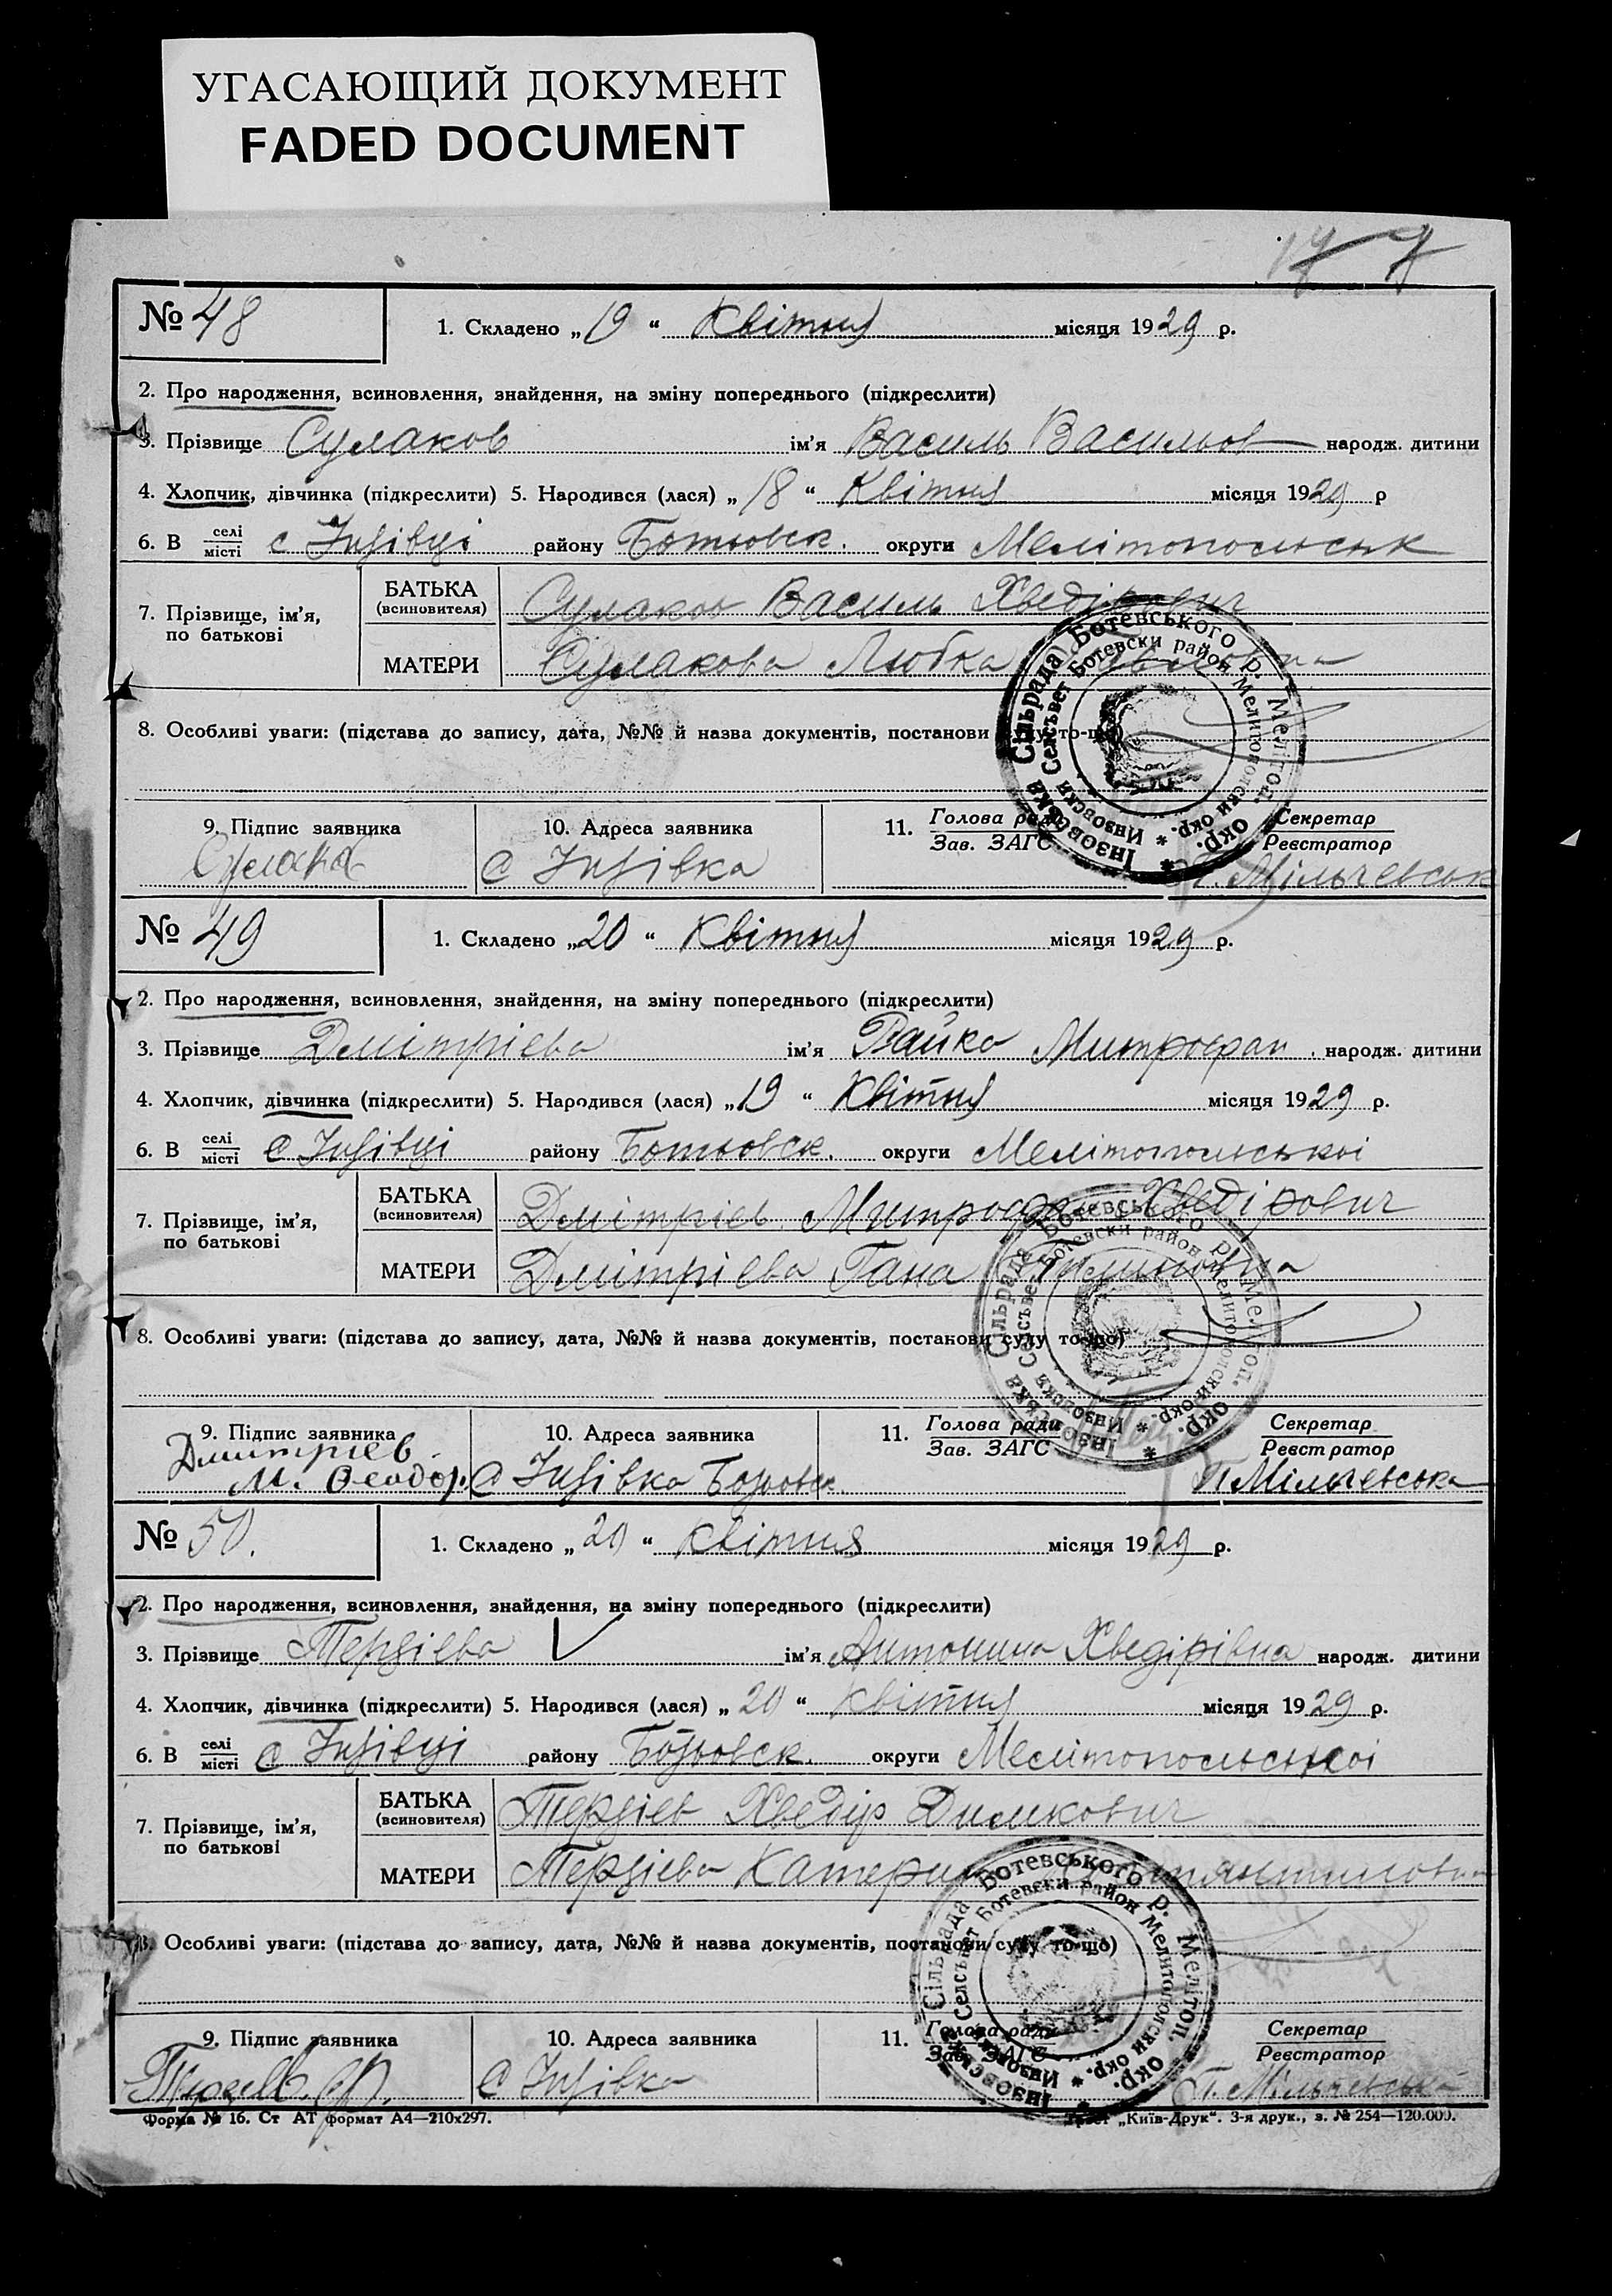 УГАСАЮЩИЙ ДОКУМЕНТ
FADED DOCUMENT
17 7
№ 48
1. Складено „19“ Квітня місяця 1929 р.
2. Про народження, всиновлення, знайдення, на зміну попереднього (підкреслити)
3. Прізвище Сулаков ім'я Василь Васильов народж. дитини
4. Хлопчик, дівчинка (підкреслити) 5. Народився (лася) „18“ Квітня місяця 1929 р
6. В селі місті с Інзівці району Ботьовск. округи Мелітопольськ
7. Прізвище, ім'я, по батькові
БАТЬКА (всиновителя) Сулаков Василь Хведірович
МАТЕРИ Сулакова Любка
8. Особливі уваги: (підстава до запису, дата, №№ й назва документів, постанови суду то-що)
9. Підпис заявника 10. Адреса заявника 11. Голова ради Зав. ЗАГС Секретар Реєстратор
Сулаков с Інзівка П. Мільчевськ
Інзовська Сільрада Ботевського р. Меліт оп. окр.
Инзовски Селсъвет Ботевски район Мелитополски окр.
№ 49
1. Складено „20“ Квітня місяця 1929 р.
2. Про народження, всиновлення, знайдення, на зміну попереднього (підкреслити)
3. Прізвище Дмітрієва ім'я Райка Митрофан. народж. дитини
4. Хлопчик, дівчинка (підкреслити) 5. Народився (лася) „19“ Квітня місяця 1929 р.
6. В селі місті с Інзівці району Ботьовск. округи Мелітопольської
7. Прізвище, ім'я, по батькові
БАТЬКА (всиновителя) Дмітрієв Митрофан Хведірович
МАТЕРИ Дмітрієва Гана
8. Особливі уваги: (підстава до запису, дата, №№ й назва документів, постанови суду то-що)
9. Підпис заявника 10. Адреса заявника 11. Голова ради Зав. ЗАГС Секретар Реєстратор
Дмитриев
М. Феодор. с Інзівка Ботьовск. П Мільчевська
Інзовська Сільрада Ботевського р. Меліт оп. окр.
Инзовски Селсъвет Ботевски район Мелитополски окр.
№ 50.
1. Складено „20“ квітня місяця 1929 р.
2. Про народження, всиновлення, знайдення, на зміну попереднього (підкреслити)
3. Прізвище Терзієва ім'я Антонина Хведірівна народж. дитини
4. Хлопчик, дівчинка (підкреслити) 5. Народився (лася) „20“ квітня місяця 1929 р.
6. В селі місті с Інзівці району Ботьовск. округи Мелітопольської
7. Прізвище, ім'я, по батькові
БАТЬКА (всиновителя) Терзієв Хведір Димкович
МАТЕРИ Терзієва Катерина
8. Особливі уваги: (підстава до запису, дата, №№ й назва документів, постанови суду то-що)
9. Підпис заявника 10. Адреса заявника 11. Голова ради Зав. ЗАГС Секретар Реєстратор
с Інзівка П. Мільчевська
Інзовська Сільрада Ботевського р. Меліт оп. окр.
Инзовски Селсъвет Ботевски район Мелитополски окр.
Форма № 16. Ст АТ формат А4—210х297. Трест „Київ-Друк“. 3-я друк., з. № 254—120.000.